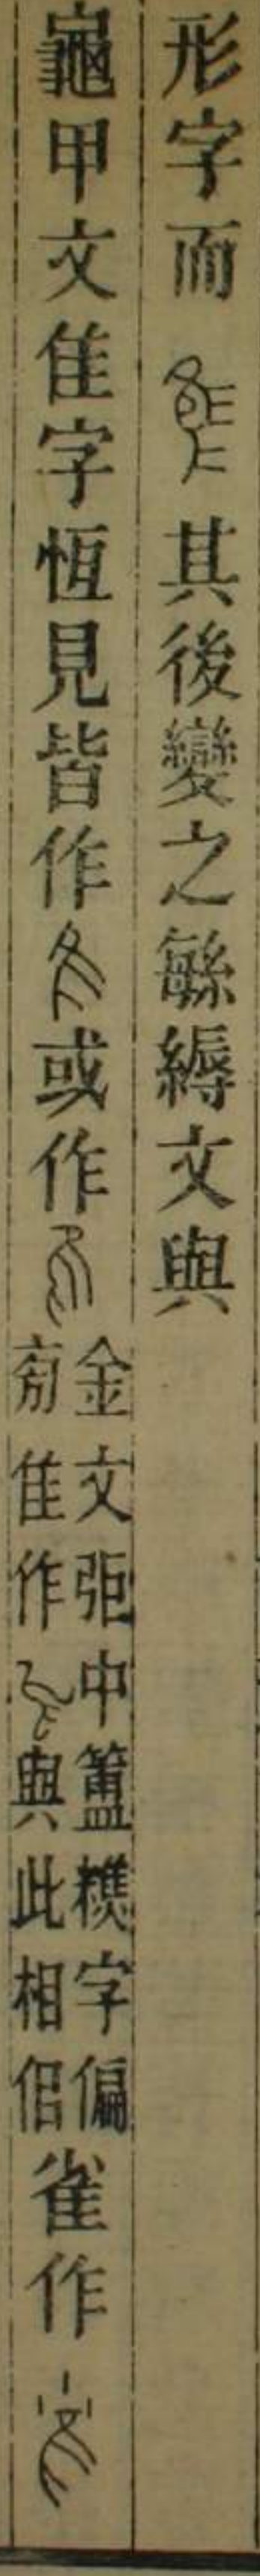 形字而其後變之緐縟文與
龜甲文隹字恆見皆作或作金文弡中簠糕字偏旁隹作與此相佀雀作